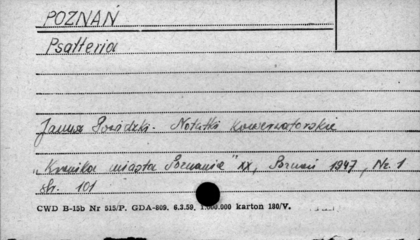 POZNAŃ
Psałteria
Janusz Powidzki. Notatki konserwatorskie
„Kronika miasta Poznania" XX, Poznań 1947, Nr. 1
str. 101
CWD B-15b Nr 515/P. GDA-809. 6.3.59. 1.000.000 karton 180/V.